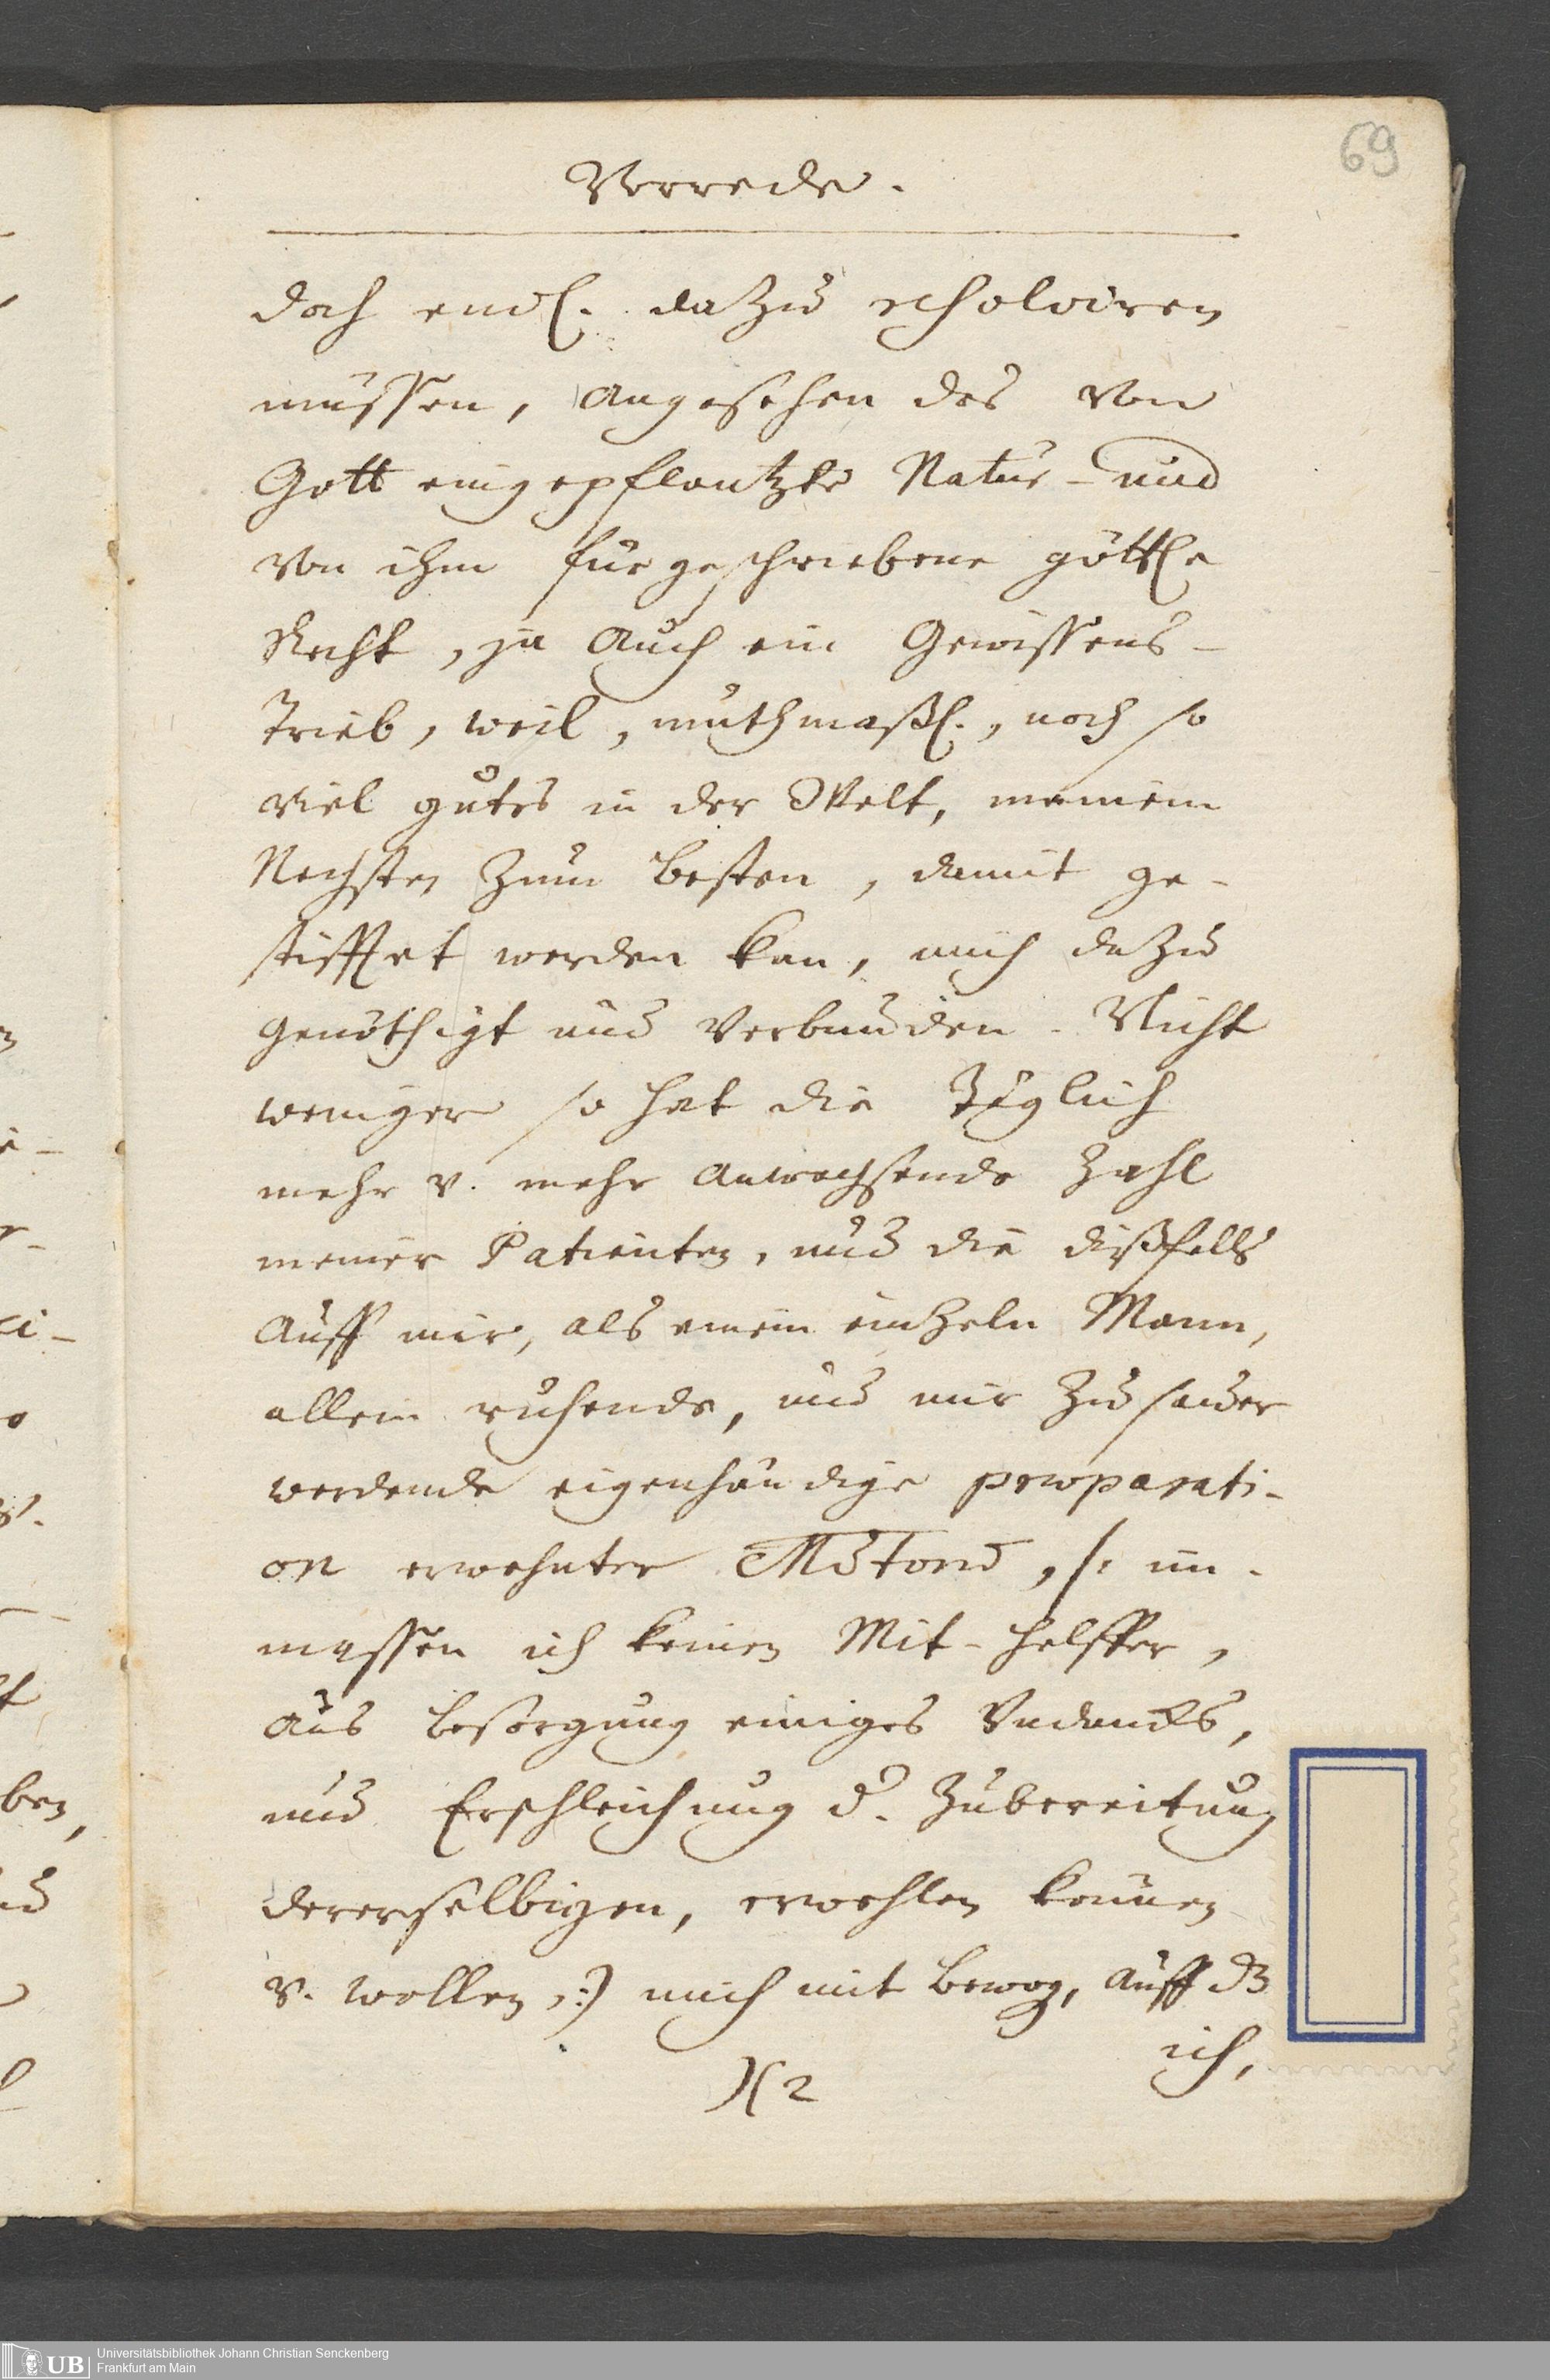 69
Vorrede.
doch endl. dazu resolviren
müssen, angesehen das von
Gott eingepflantzte Natur- und
von ihm fürgeschriebene göttle
Recht, ja auch ein Gewissens-
Trieb, weil, muthmaßl., noch so
viel gutes in der Welt, meinem
Nechsten zum besten, damit ge-
stifftet werden kan, mich dazu
genöthigt und verbunden. Nicht
weniger so hat die Täglich
mehr v. mehr anwachsende Zahl
meiner Patienten, und die dißfalls
auff mir, als einem eintzeln Mann,
allein ruhende, und mir zu sauer
werdende eigenhändige præparati-
on erwehnter , (: im-
massen ich keinen Mit-helffer,
aus besorgung einiges Undancks,
und Erschleichung d. Zubereitung
dererselbigen, erwehlen können
v. wollen, :) mich mit bewog, auff dz
ich,
)( 2
UB
Universitätsbibliothek Johann Christian Senckenberg
Frankfurt am Main